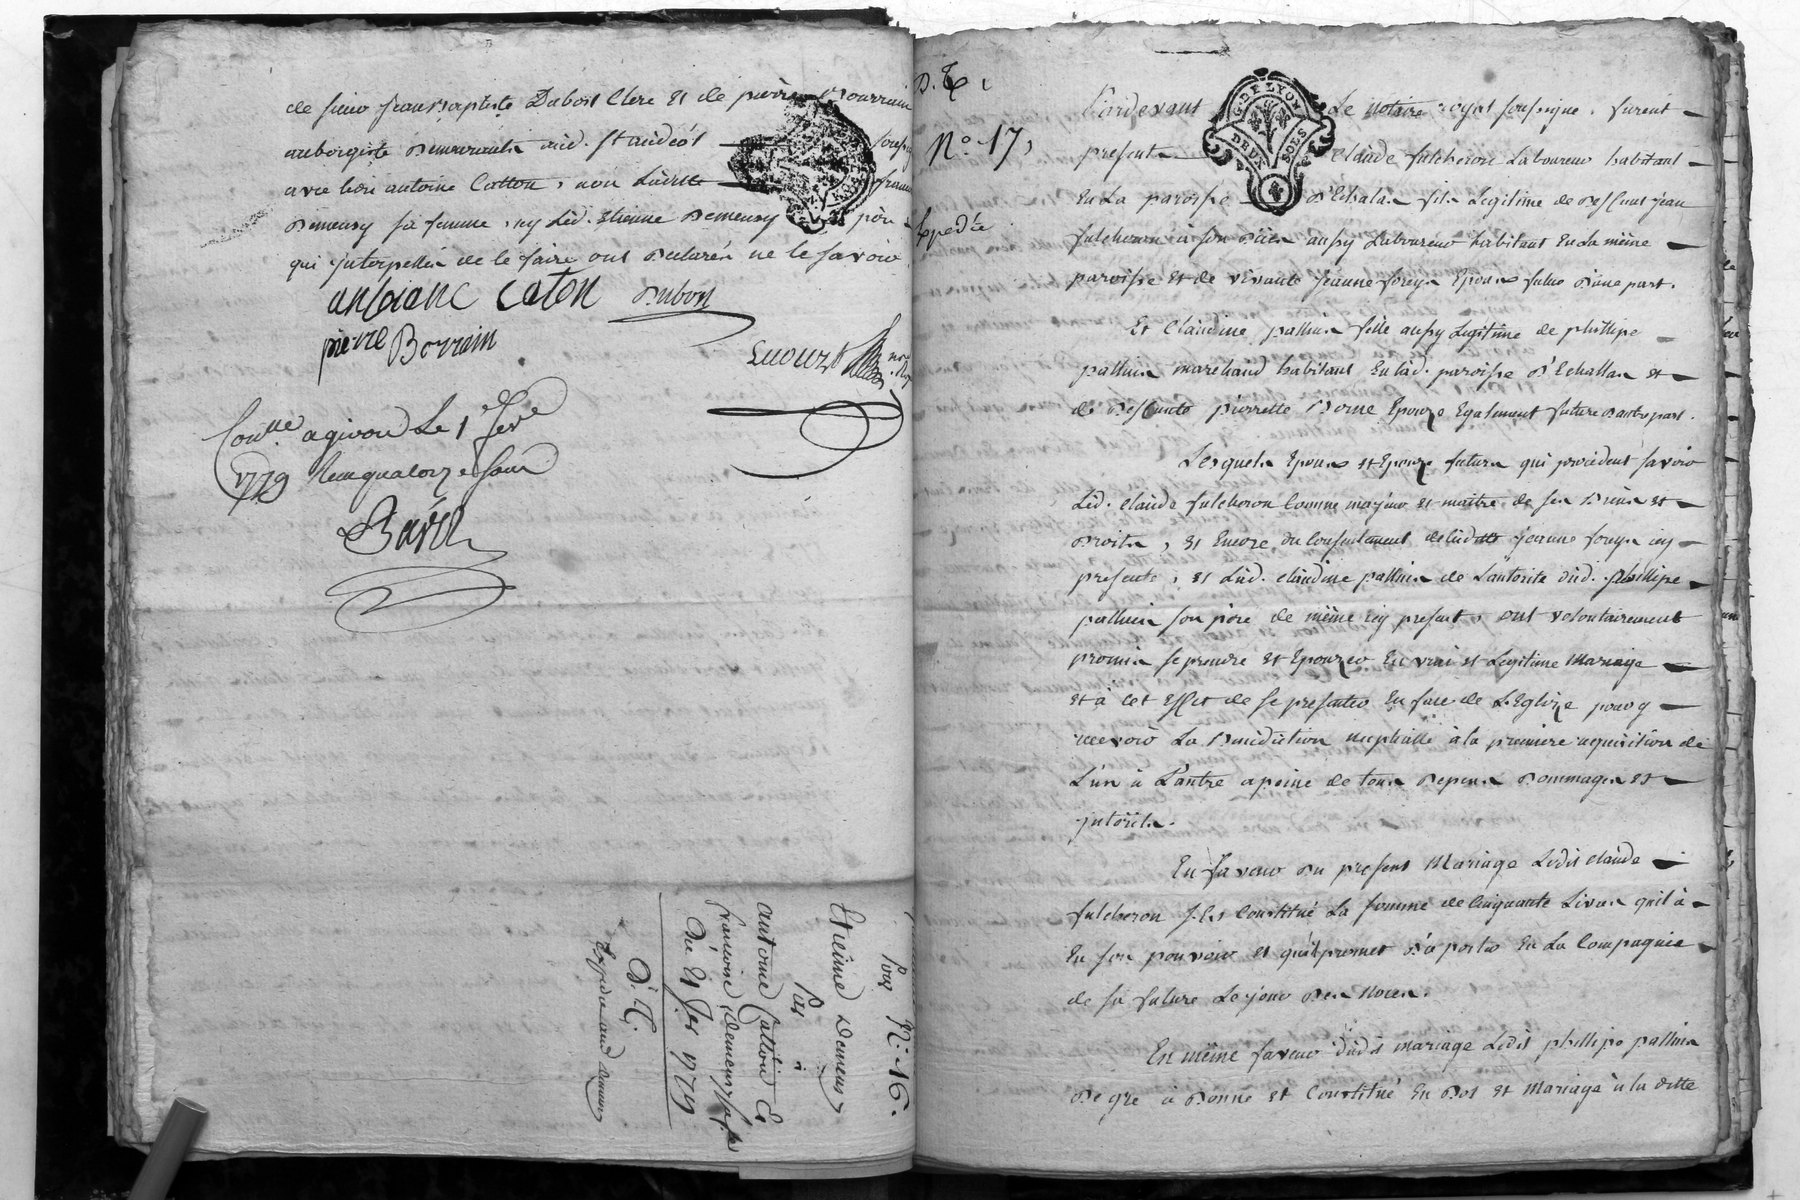 de sieur Jean Baptiste Dubost Clerc Et de pierre Bourrain
aubergiste Demeurants aud. St andéol soussig
avec led. antoine Catton, non Ladite fran
Demeury sa femme, ny Led. Etienne Demeury père
qui Jnterpellés de le faire ont Declarés ne le savoir
antoene caton Dubost
pierre Borrain
no.re Roy.
Con.lle a givors Le 1 fev
1779 Reçu quatorze sous
Bavet
N.º 16.
Pour
Etienne Demeury
Par
à
antoine Cattoin Et
francoise Demeury sa fe
Du 21 Jer 1779
D. C.
D. C.
N.º 17,
Expediée
G. DE LYON
DEUX SOLS
Pardevant Le Notaire royal soussigné. furent
presents Claude fulcheron Laboureur habitant
En La paroisse D'Echalas fils Legitime de Deffunt jean
fulcheron à son Vivant aussy Laboureur habitant En La même
paroisse Et de vivante Jeanne Epoux futur D'une part.
Et Claudine palluis fille aussy Légitime de phillipe
palluis marchand habitant En lad. paroisse D'Echallas et
de Deffunte pierrette Epouze Egalement future D'autre part.
Lesquels Epoux et Epouze futurs qui procedent savoir
Led. Claude fulcheron Comme majeur et maitre de ses Biens et
Droits, Et Encore du Consentement de ladite jeanne icy
presente, et Lad. claudine palluis de L'autorité dud. phillipe
palluis son père de même icy present, ont volontairement
promis se prendre et Epouzer En vrai et Legitime Mariage
Et à cet Effet de se presenter En face de L'Eglize pour y
recevoir La Benediction nuptialle à la premiere requisition de
L'un à L'autre a peine de tous Depens Dommages et
jnterêts.
En faveur Du present Mariage Ledit Claude
fulcheron S'est Constitué La somme de Cinquante Livres qu'il à
En son pouvoir et qu'il promet D'aporter En La Compagnie
de sa future Le jour Des Noces.
En même faveur dudit mariage Ledit phillipe palluis
De gré à Donné et Constitué En Dot et Mariage à la ditte